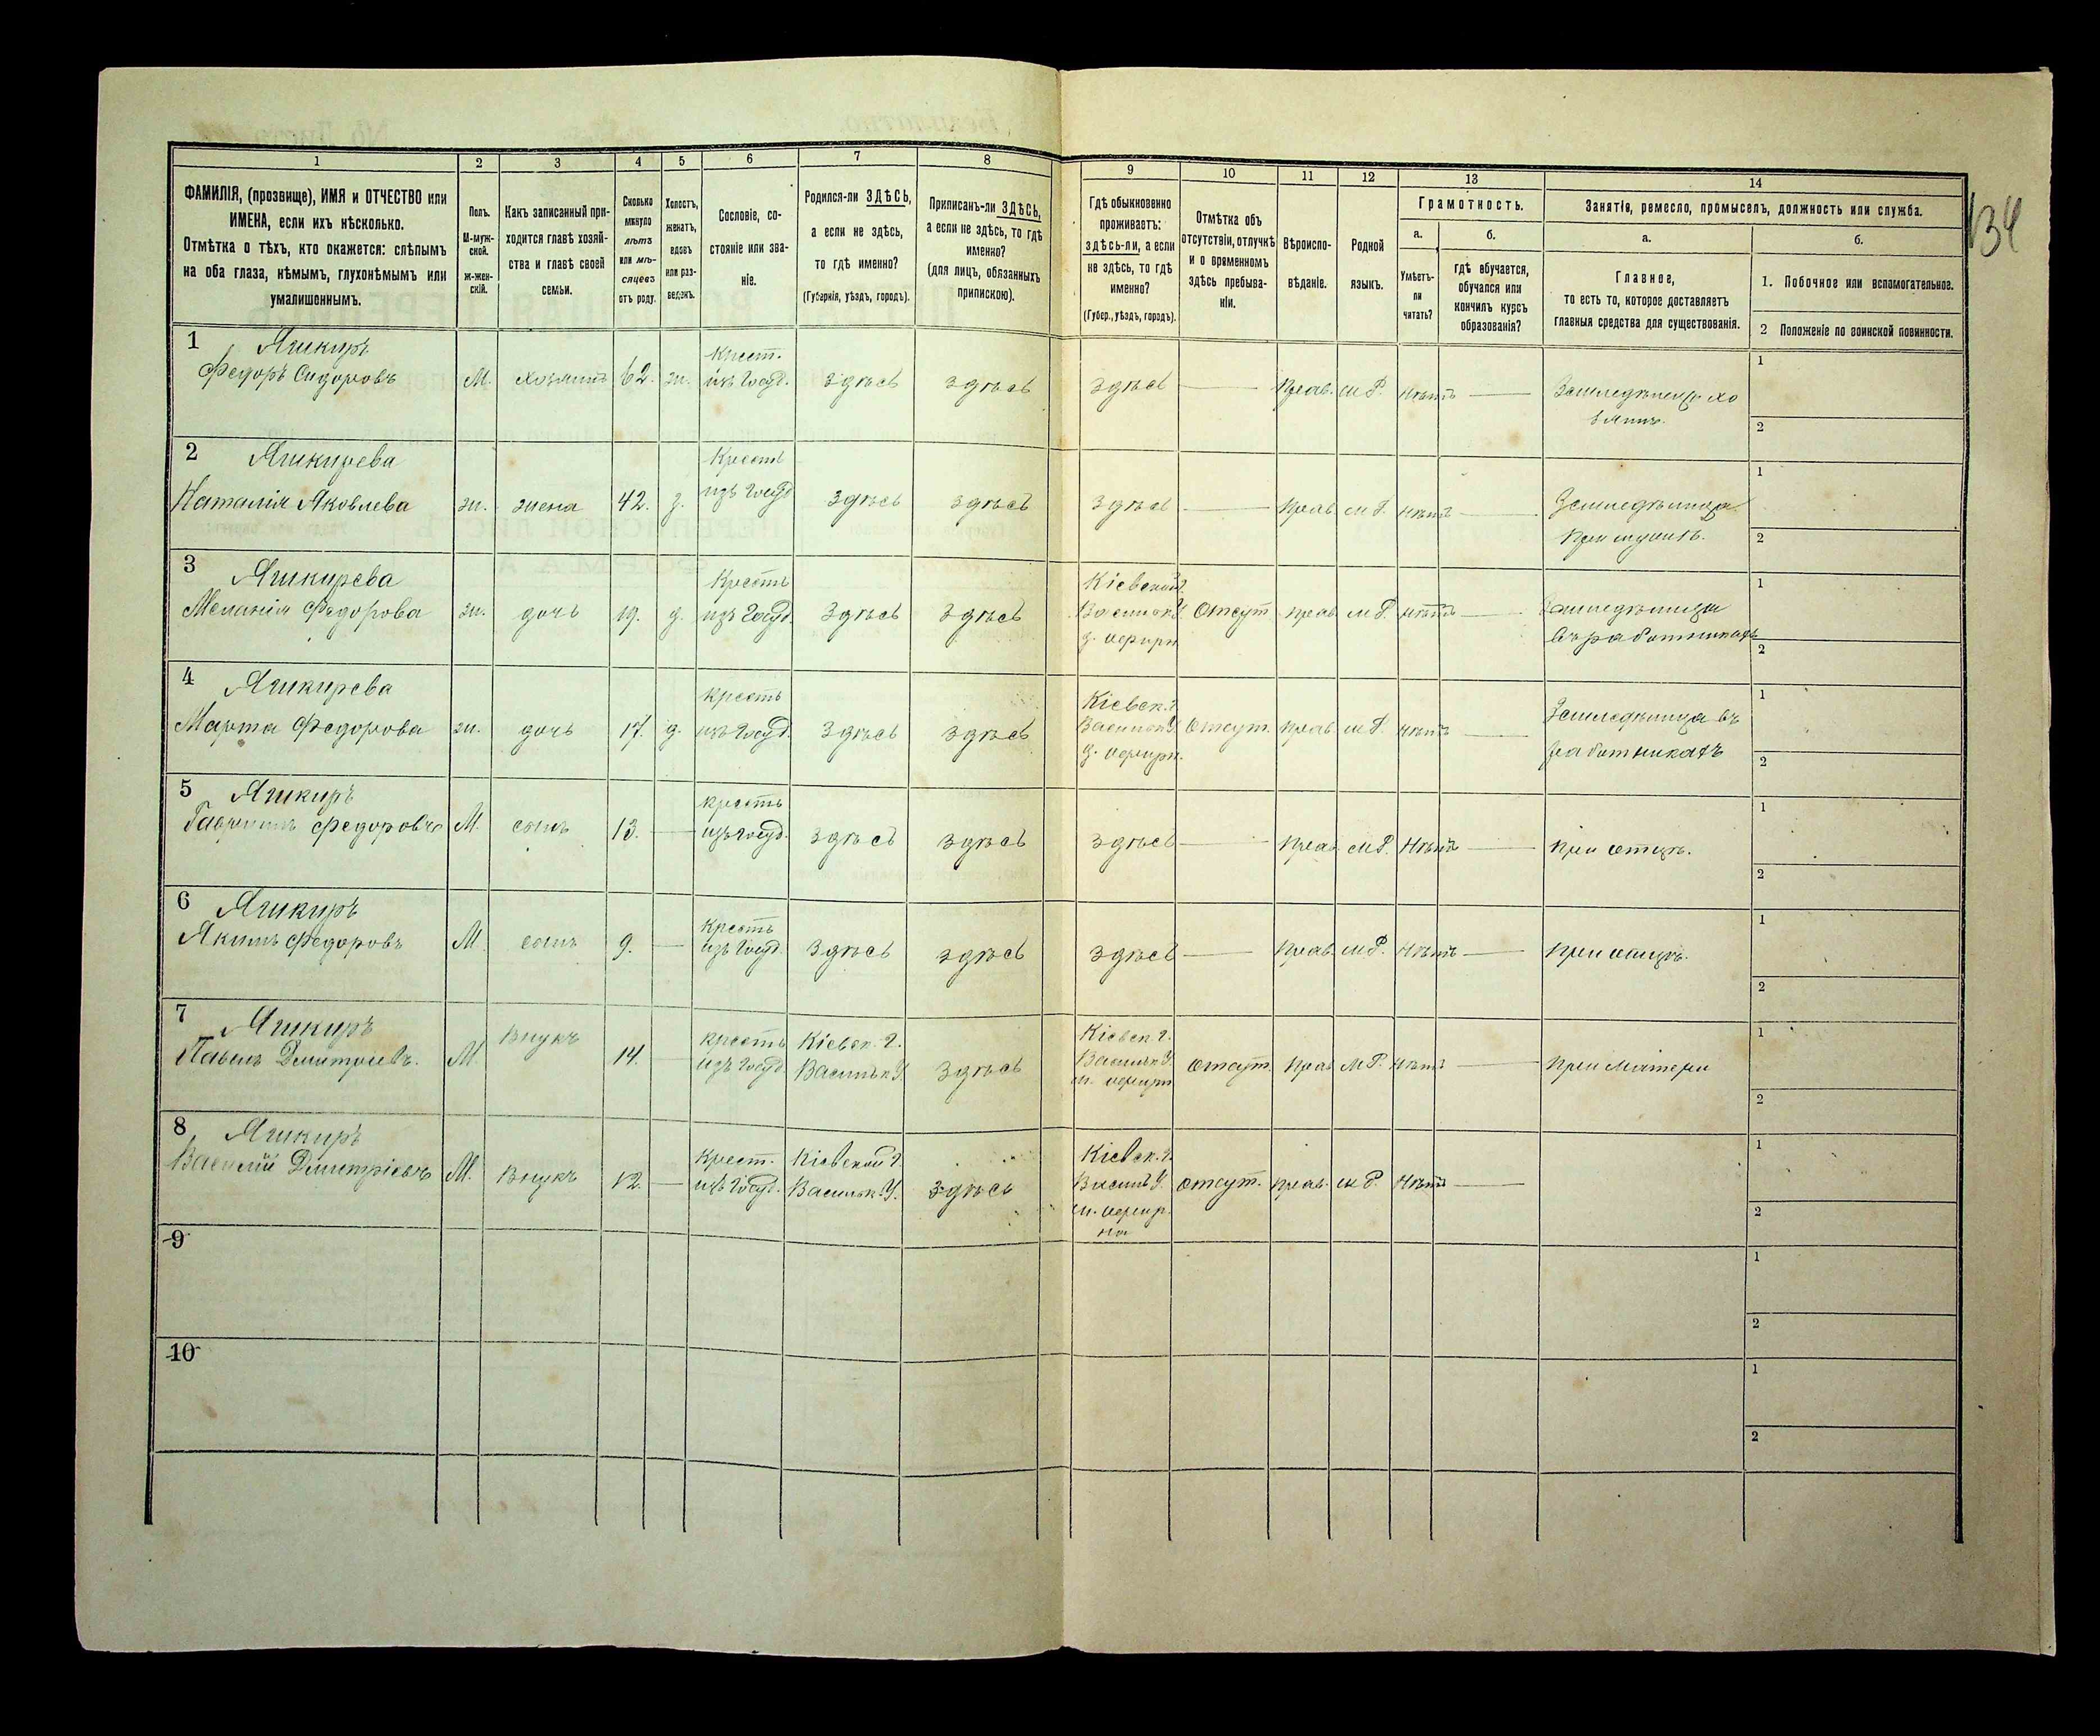 134
1 2 3 4 5 6 7 8 9 10 11 12 13 14
ФАМИЛІЯ, (прозвище), ИМЯ и ОТЧЕСТВО или
ИМЕНА, если ихъ нѣсколько.
Отмѣтка о тѣхъ, кто окажется: слѣпымъ
на оба глаза, нѣмымъ, глухонѣмымъ или
умалишоннымъ.
Полъ.
М-муж-
ской.
ж-жен-
скій.
Какъ записанный при-
ходится главѣ хозяй-
ства и главѣ своей
семьи.
Сколько
минуло
лѣтъ
или мѣ-
сяцевъ
отъ роду.
Холостъ,
женатъ,
вдовъ
или раз-
веденъ.
Сословіе, со-
стояніе или зва-
ніе.
Родился-ли ЗДѢСЬ,
а если не здѣсь,
то гдѣ именно?
(Губернія, уѣздъ, городъ).
Приписанъ-ли ЗДѢСЬ,
а если не здѣсь, то гдѣ
именно?
(для лицъ, обязанныхъ
припискою).
Гдѣ обыкновенно
проживаетъ:
здѣсь-ли, а если
не здѣсь, то гдѣ
именно?
(Губер., уѣздъ, городъ).
Отмѣтка объ
отсутствіи, отлучкѣ
и о временномъ
здѣсь пребыва-
ніи.
Вѣроиспо-
вѣданіе.
Родной
языкъ.
Грамотность.
а.
Умѣетъ-
ли
читать?
б.
гдѣ обучается,
обучался или
кончилъ курсъ
образованія?
Занятія, ремесло, промыселъ, должность или служба.
а.
Главное,
то есть то, которое доставляетъ
главныя средства для существованія.
б.
1. Побочное или вспомогательное.
2 Положеніе по воинской повинности.
1 Яшкиръ
Федоръ Сидоровъ М. хозяинъ 62. ж. Крест. изъ Госуд. здѣсь здѣсь здѣсь — Прав. м Р. нѣтъ — Земледѣлецъ хо
зяинъ.
1
2
2 Яшкирева
Наталія Яковлева ж. жена 42. з. Крестъ изъ Госуд здѣсь здѣсь здѣсь — Прав м Р. нѣтъ — Земледѣлица
при мужѣ.
1
2
3 Яшкирева
Меланія Федорова ж. дочь 19. д. Крестъ изъ Госуд здѣсь здѣсь Кіевской г. Васильк У Отсут Прав м Р нѣтъ — Земледѣлица
въ работникахъ
1
2
4 Яшкирева
Марта Федорова ж. дочь 17. д. крестъ изъ Госуд. здѣсь здѣсь Кіевск. г. Васильк У Отсут. Прав. м Р. нѣтъ — Земледѣлица въ
работникахъ
1
2
5 Яшкиръ
Гаврилъ Федоровъ М. сынъ 13. — крестъ изъ Госуд. здѣсь здѣсь здѣсь — Прав м Р. Нѣтъ — при отцѣ.
1
2
6 Яшкиръ
Якимъ Федоровъ М сынъ 9. — крестъ изъ Госуд здѣсь здѣсь здѣсь — Прав. м Р. Нѣтъ — при отцѣ.
1
2
7 Яшкиръ
Павелъ Дмитріевъ. М. Внукъ 14. — крестъ изъ Госуд. Кіевск. г. Васильк У. здѣсь Кіевск г. Васильк У Отсут. Прав м Р. нѣтъ — при матери
1
2
8 Яшкиръ
Василій Дмитріевъ М. Внукъ 12. — Крест. изъ Госуд. Кіевской г. Васильк. У. здѣсь Кіевск. г. Василь У. Отсут. Прав. м Р. Нѣтъ —
1
2
9
1
2
10
1
2